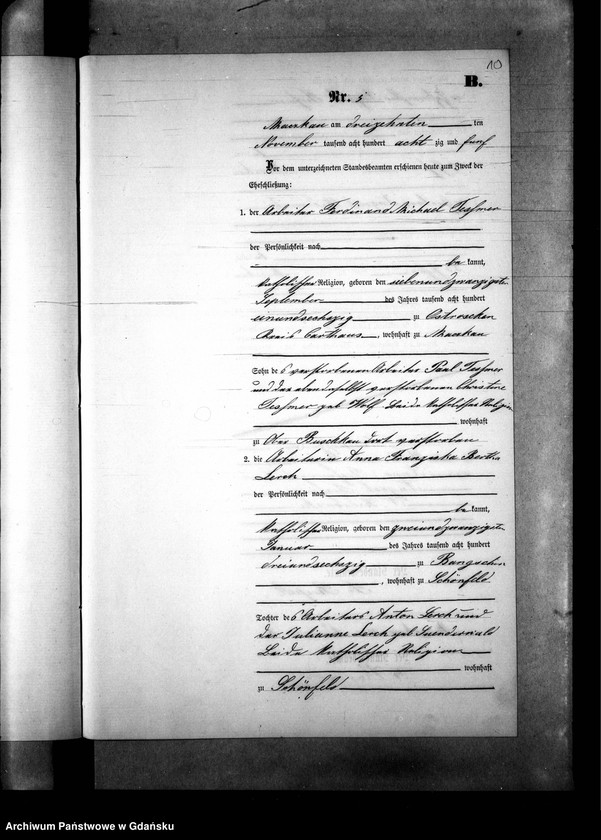 10
B.
Nr. 5
Maczkau am dreizehnten ten
November tausend acht hundert acht zig und fünf
Vor dem unterzeichneten Standesbeamten erschienen heute zum Zweck der
Eheschließung:
1. der Arbeiter Ferdinand Michael Teßmer
der Persönlichkeit nach
be kannt,
katholischer Religion, geboren den siebenundzwanzigsten
September des Jahres tausend acht hundert
einundsechzig zu Ostroschken
Kreis Carthaus, wohnhaft zu Maczkau
Sohn des verstorbenen Arbeiter Paul Teßmer
und der ebendaselbst verstorbenen Christine
Teßmer geb Wolf beide katholischer Religion
wohnhaft
zu Ober Buschkau dort verstorben
2. die Arbeiterin Anna Franziska Bertha
Lerch
der Persönlichkeit nach
be kannt,
katholischer Religion, geboren den zweiundzwanzigsten
Januar des Jahres tausend acht hundert
dreiundsechzig zu Bangschin
, wohnhaft zu Schönfeld
Tochter des Arbeiters Anton Lerch und
der Julianne Lerch geb
beide katholischer Religion
wohnhaft
zu Schönfeld
Archiwum Państwowe w Gdańsku